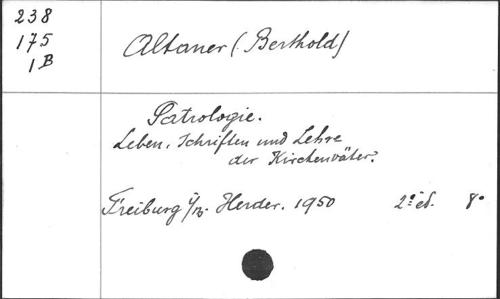 238
175
1B
Altaner (Berthold)
Patrologie.
Leben, Schriften und Lehre
der Kirchenväter.
Freiburg i/B. Herder. 1950 2º éd. 8º